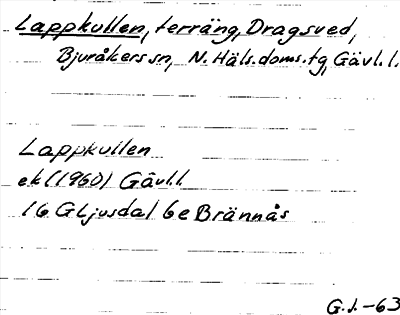 Lappkullen, terräng, Dragsved,
Bjuråkers sn, N. Häls. doms. tg, Gävl. l.
Lappkullen
ek (1960) Gävl. l
16 G Ljusdal 6e Brännås
G.J. -63